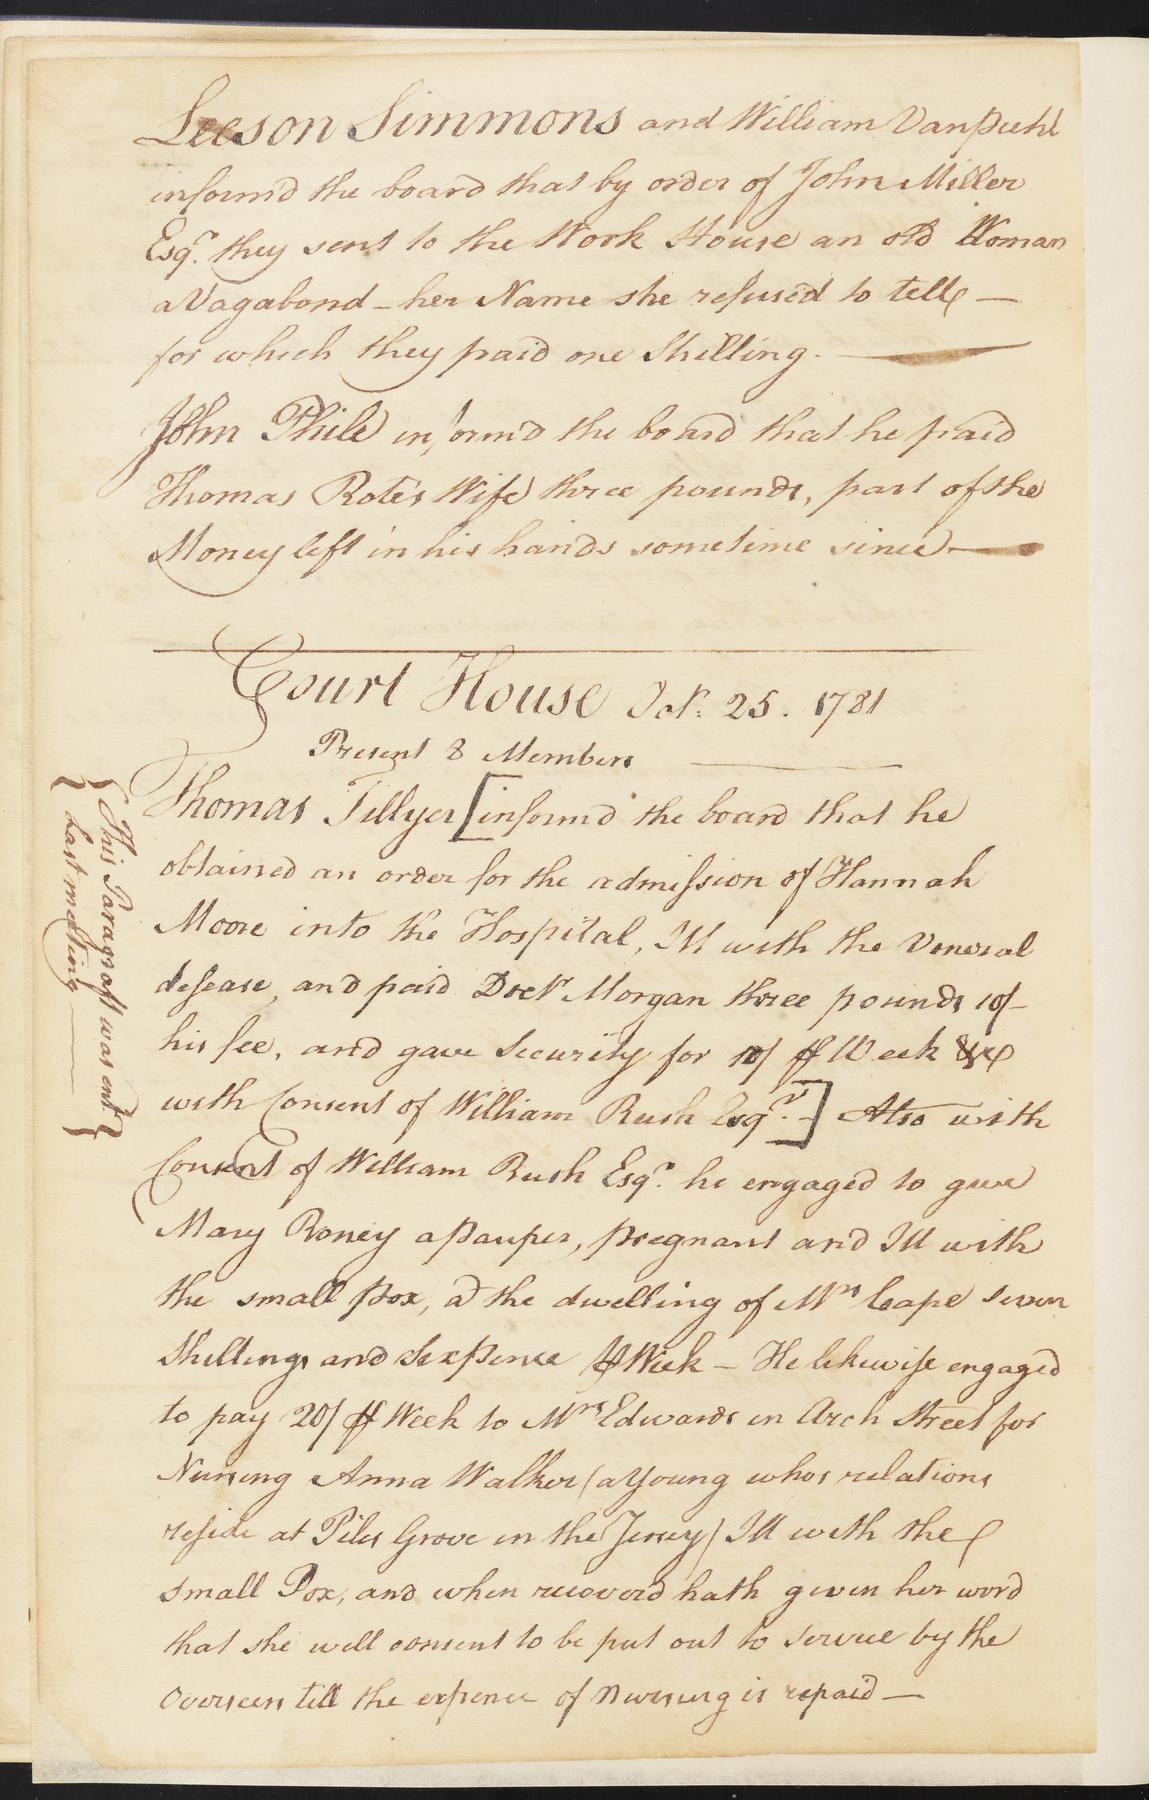 Leeson Simmons and William Vanphehl
inform'd the board that by order of John Miller
Esqr. they sent to the Work House an old Woman
a Vagabond – her Name she refused to tell —
for which they paid one Shilling. —
John Phile inform'd the board that he paid
Thomas Rote's Wife three pounds, part of the
Money left in his hands sometime since —
Court House Oct. 25. 1781
Present 8 Members —
Thomas Tillyer [inform'd the board that he
obtained an order for the admission of Hannah
Moore into the Hospital, Ill with the Veneral
desease, and paid Doctr Morgan three pounds 10/–
his fee, and gave Security for 10/ ⅌ Week &c
with Consent of William Rush Esqr.] Also with
Consent of William Rush Esqr. he engaged to give
Mary Roney a Pauper, pregnant and Ill with
the small Pox, at the dwelling of Mrs Cape seven
Shillings and Sixpence ⅌ Week – He likewise engaged
to pay 20/ ⅌ Week to Mrs Edwards in Arch Street for
Nursing Anna Walker (a Young whos relations
reside at Piles Grove in the Jersey) Ill with the
small Pox, and when recoverd hath given her word
that she will consent to be put out to service by the
Overseers till the expence of Nursing is repaid —
{This Paragraft was entd
{Last meeting —}